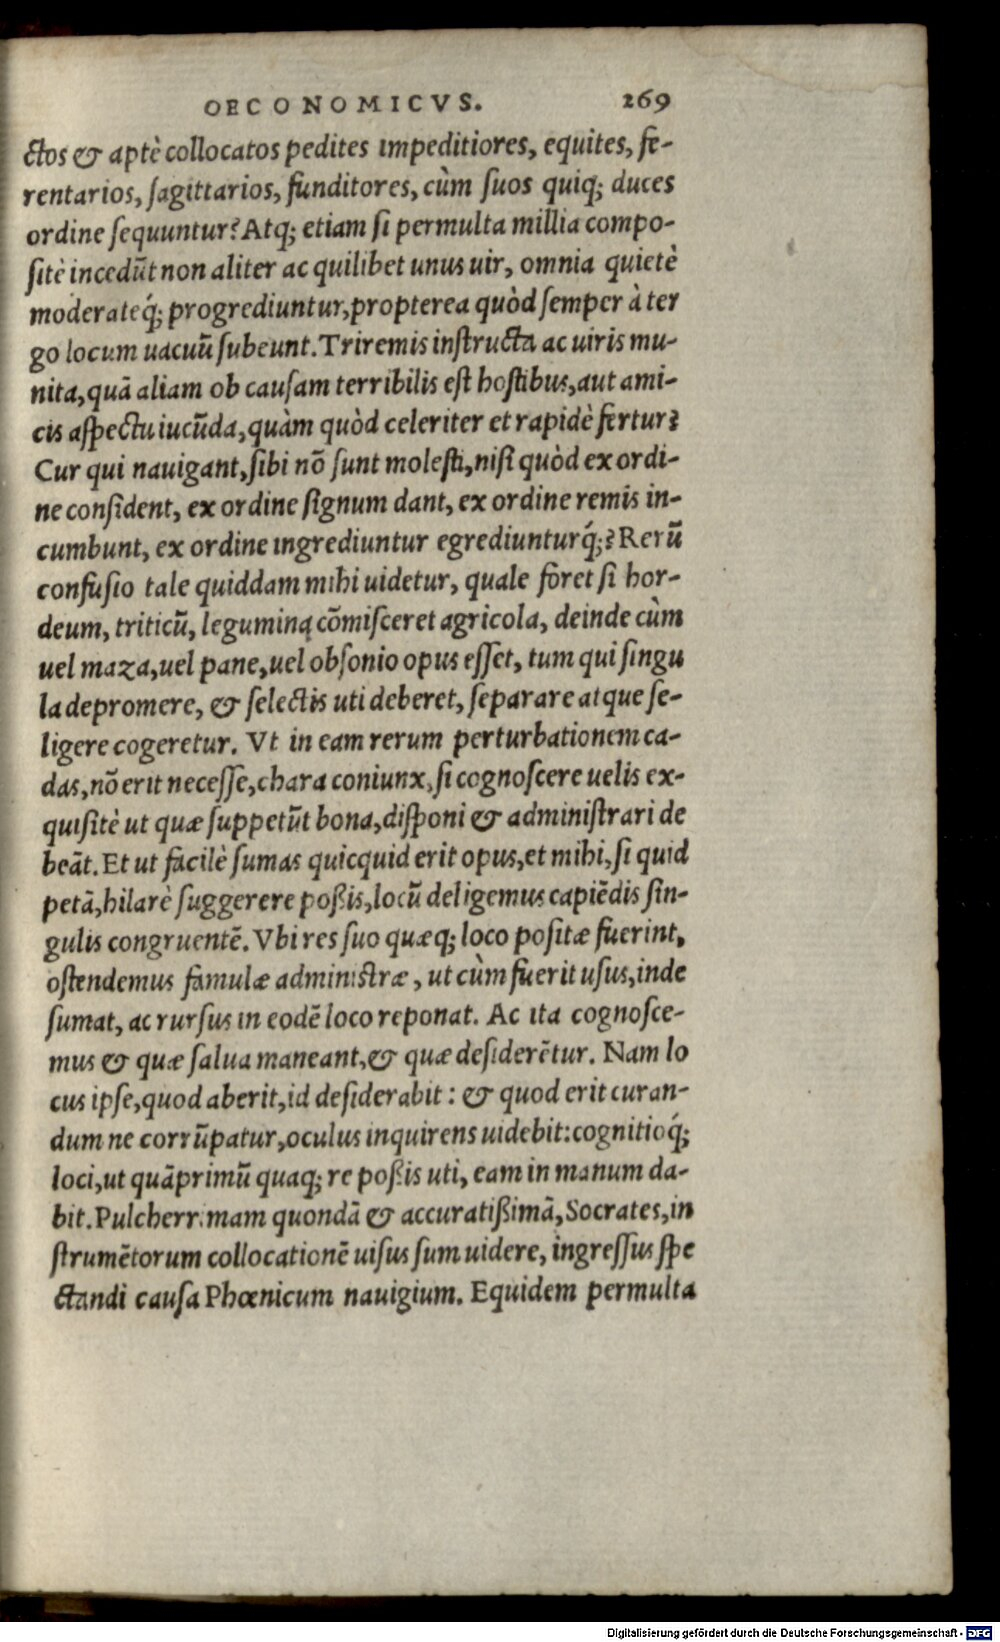 OECONOMICVS. 269
ctos & aptè collocatos pedites impeditiores, equites, fe-
rentarios, sagittarios, funditores, cùm suos quiq; duces
ordine sequuntur? Atq; etiam si permulta millia compo-
sitè incedūt non aliter ac quilibet unus uir, omnia quietè
moderateq́; progrediuntur, propterea quòd semper à ter
go locum uacuū subeunt. Triremis instructa ac uiris mu-
nita, quā aliam ob causam terribilis est hostibus, aut ami-
cis aspectu iucūda, quàm quòd celeriter et rapidè fertur?
Cur qui nauigant, sibi nō sunt molesti, nisi quòd ex ordi-
ne consident, ex ordine signum dant, ex ordine remis in-
cumbunt, ex ordine ingrediuntur egrediunturq́;? Rerū
confusio tale quiddam mihi uidetur, quale foret si hor-
deum, triticū, legumina cōmisceret agricola, deinde cùm
uel maza, uel pane, uel obsonio opus esset, tum qui singu
la depromere, & selectis uti deberet, separare atque se-
ligere cogeretur. Vt in eam rerum perturbationem ca-
das, nō erit necesse, chara coniunx, si cognoscere uelis ex-
quisitè ut quæ suppetūt bona, disponi & administrari de
beāt. Et ut facilè sumas quicquid erit opus, et mihi, si quid
petā, hilarè suggerere poßis, locū deligemus capiēdis sin-
gulis congruentē. Vbi res suo quæq; loco positæ fuerint,
ostendemus famulæ administræ, ut cùm fuerit usus, inde
sumat, ac rursus in eodē loco reponat. Ac ita cognosce-
mus & quæ salua maneant, & quæ desiderētur. Nam lo
cus ipse, quod aberit, id desiderabit: & quod erit curan-
dum ne corrūpatur, oculus inquirens uidebit: cognitioq́;
loci, ut quāprimū quaq; re poßis uti, eam in manum da-
bit. Pulcherrimam quondā & accuratißimā, Socrates, in
strumētorum collocationē uisus sum uidere, ingressus spe
ctandi causa Phœnicum nauigium. Equidem permulta
Digitalisierung gefördert durch die Deutsche Forschungsgemeinschaft - DFG